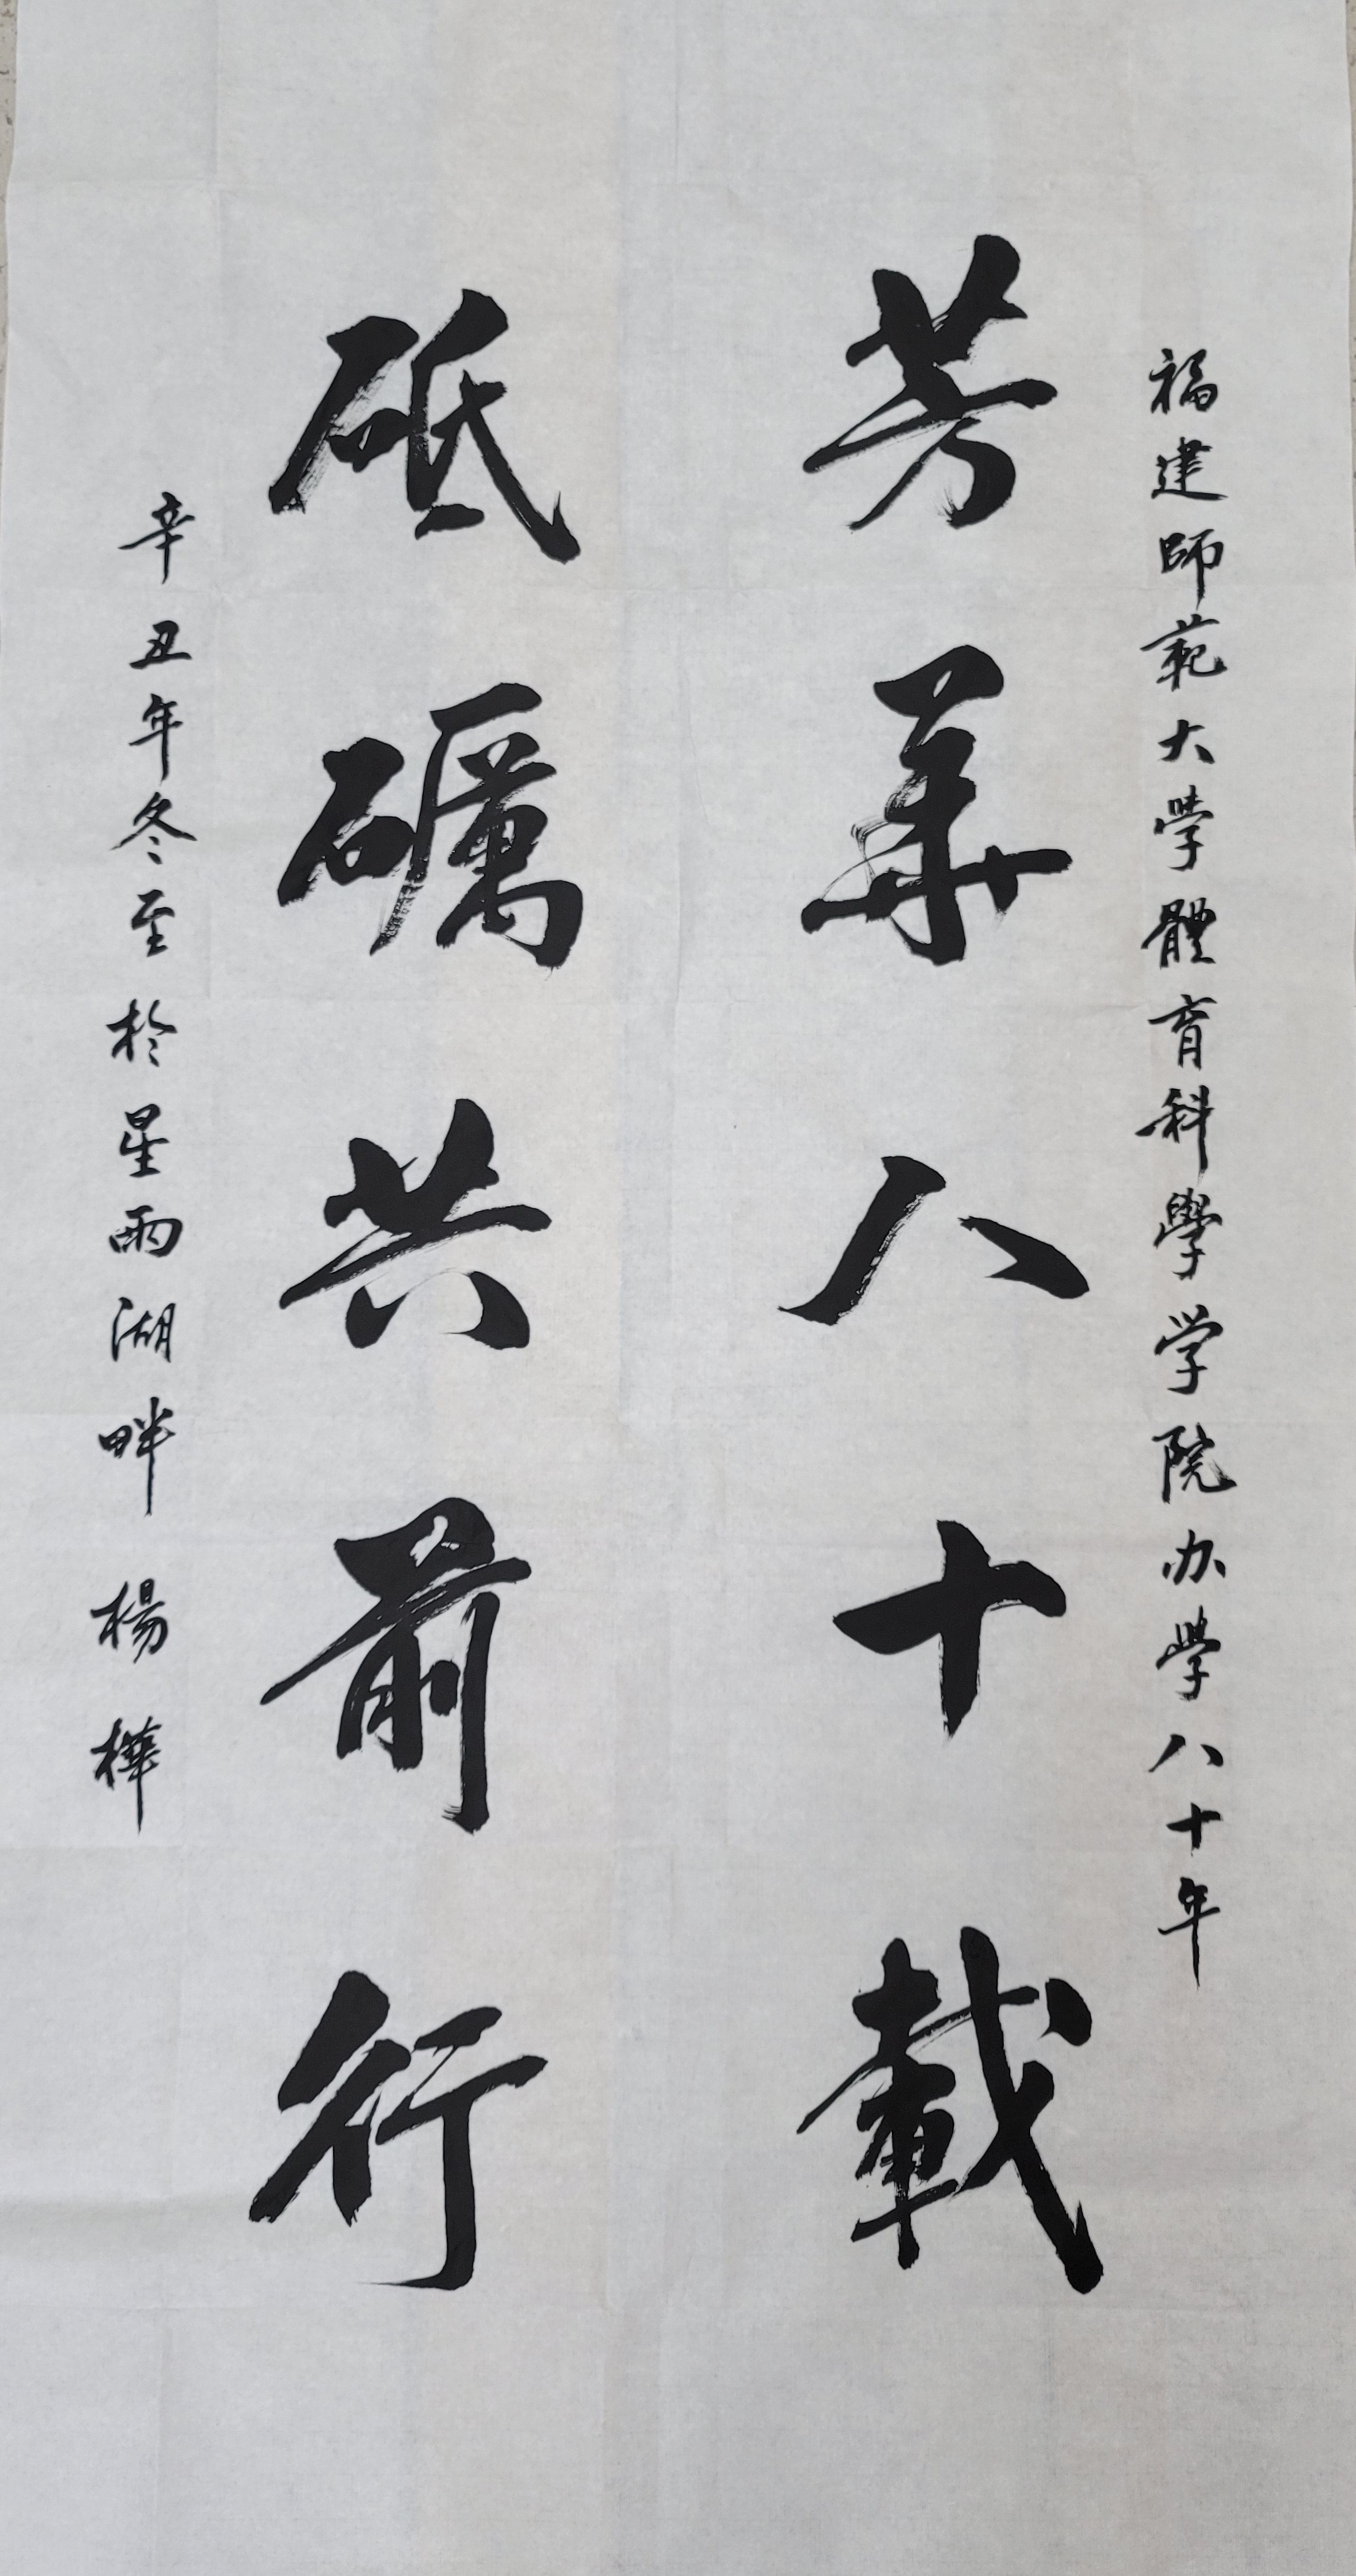 福建師範大學體育科學学院办學八十年
芳華八十載
砥礪共前行
辛丑年冬至於星雨湖畔 楊樺